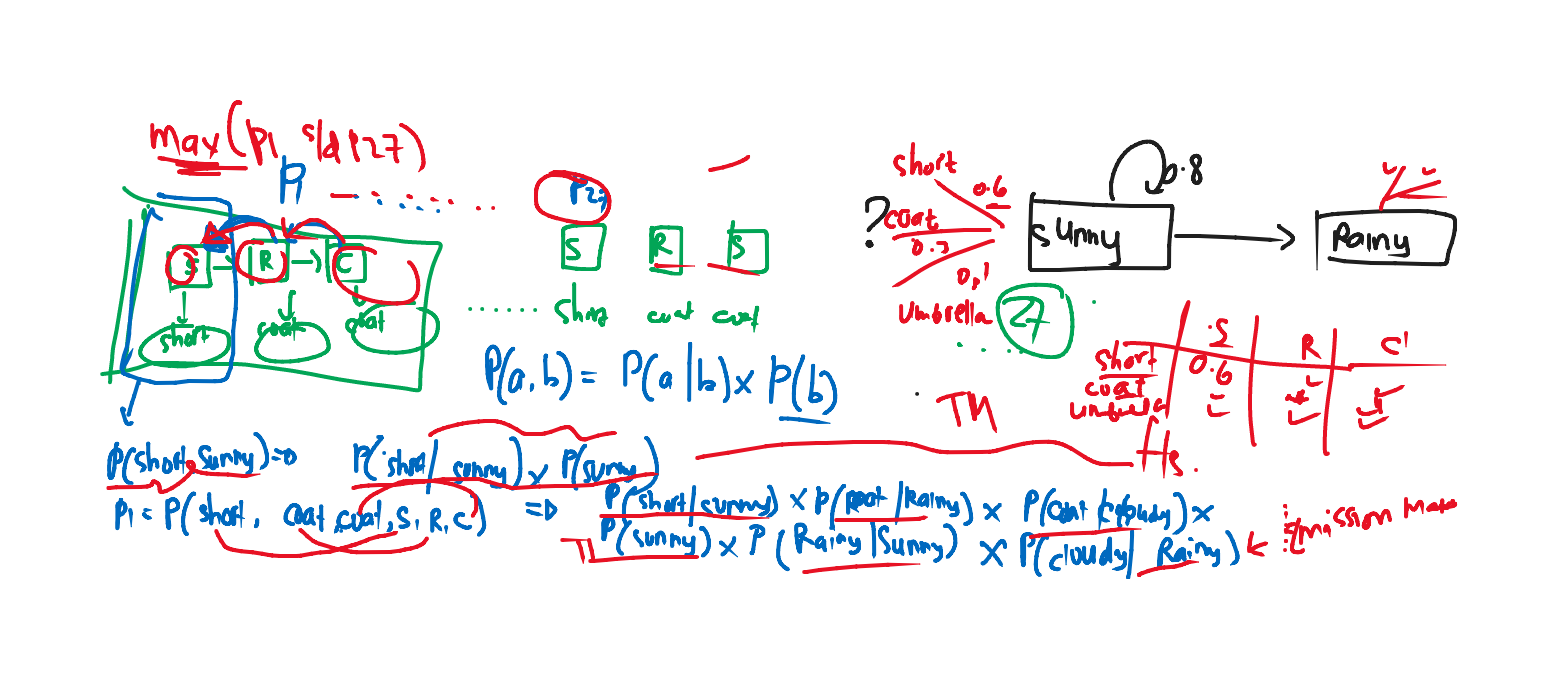 max(P1 s/d P27)
P1
P27
S R C
short coat coat
S R S
short coat coat
P(a,b) = P(a|b) x P(b)
?
short 0.6
coat 0.3
0,1
umbrella
27
Sunny
0.8
Rainy
S R C
short 0.6
coat
umbrella
TM
P(short, sunny) =>
P(short / sunny) x P(sunny)
P1 = P(short, coat, coat, S, R, C) =>
P(short/sunny) x P(coat/Rainy) x P(coat/cloudy) x
π P(sunny) x P(Rainy|Sunny) x P(cloudy| Rainy)
Emission